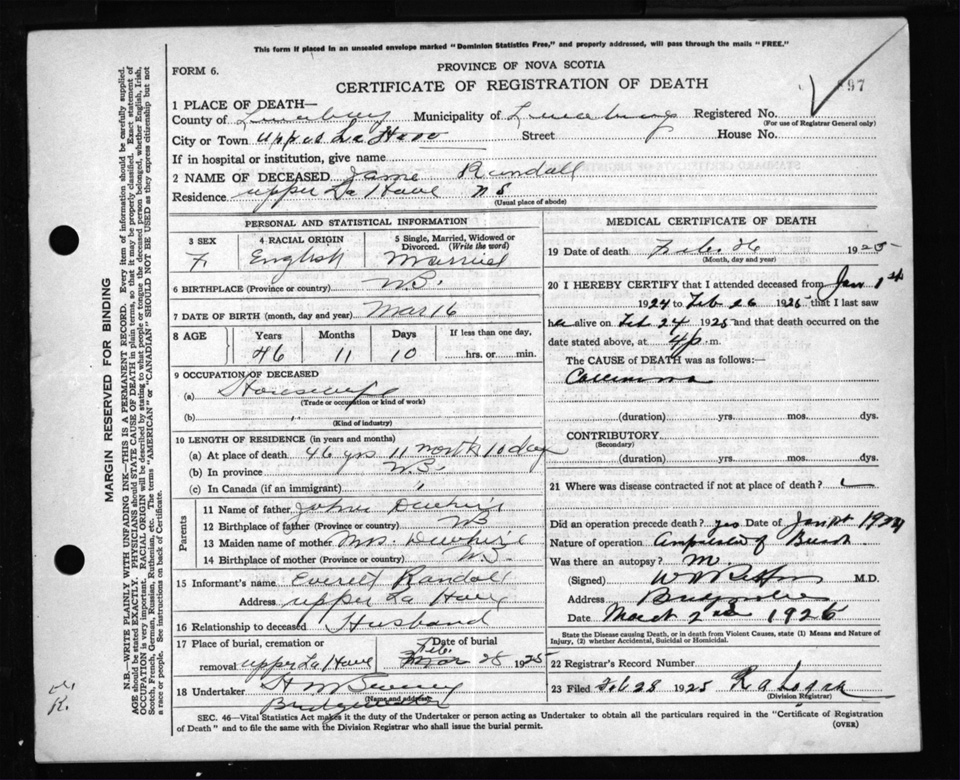 This form if placed in an unsealed envelope marked "Dominion Statistics Free," and properly addressed, will pass through the mails "FREE."
FORM 6.
PROVINCE OF NOVA SCOTIA
CERTIFICATE OF REGISTRATION OF DEATH
97
1 PLACE OF DEATH—
County of Lunenburg Municipality of Lunenburg Registered No.
(For use of Registrar General only)
City or Town Upper La Have Street House No.
If in hospital or institution, give name
2 NAME OF DECEASED Jane Randall
Residence Upper La Have N S
(Usual place of abode)
PERSONAL AND STATISTICAL INFORMATION
3 SEX 4 RACIAL ORIGIN 5 Single, Married, Widowed or Divorced. (Write the word)
F. English Married
6 BIRTHPLACE (Province or country)
7 DATE OF BIRTH (month, day and year) Mar 16
8 AGE Years Months Days If less than one day,
46 11 10 hrs. or min.
9 OCCUPATION OF DECEASED
(a) Housewife
(Trade or occupation or kind of work)
(b) "
(Kind of industry)
10 LENGTH OF RESIDENCE (in years and months)
(a) At place of death 46 yrs 11 month 10 days
(b) In province
(c) In Canada (if an immigrant) "
Parents
11 Name of father John
12 Birthplace of father (Province or country)
13 Maiden name of mother Mrs.
14 Birthplace of mother (Province or country)
15 Informant's name Everett Randall
Address Upper La Have
16 Relationship to deceased Husband
17 Place of burial, cremation or removal Upper La Have
Date of burial Feb. Mar 28 1925
18 Undertaker
(Name and address)
Bridgewater
MEDICAL CERTIFICATE OF DEATH
19 Date of death Feb 26 1925
(Month, day and year)
20 I HEREBY CERTIFY that I attended deceased from Jan 1st
1924 to Feb 26 1925, that I last saw
her alive on Feb 24 1925 and that death occurred on
date stated above, at 4 p.m.
The CAUSE of DEATH was as follows:
Carcinoma
(duration) yrs. mos. dys.
CONTRIBUTORY
(Secondary)
(duration) yrs. mos. dys.
21 Where was disease contracted if not at place of death?
Did an operation precede death? yes Date of Jan 1st 1924
Nature of operation Amputation of Breast
Was there an autopsy?
(Signed) M.D.
Address Bridgewater
Date March 2nd 1925
State the Disease causing Death, or in death from Violent Causes, state (1) Means and Nature of Injury, (2) whether Accidental, Suicidal or Homicidal.
22 Registrar's Record Number
23 Filed Feb 28 1925 R A Logan
(Division Registrar)
SEC. 46—Vital Statistics Act makes it the duty of the Undertaker or person acting as Undertaker to obtain all the particulars required in the "Certificate of Registration
of Death" and to file the same with the Division Registrar who shall issue the burial permit.
(OVER)
MARGIN RESERVED FOR BINDING
N.B.—WRITE PLAINLY WITH UNFADING INK—THIS IS A PERMANENT RECORD. Every item of information should be carefully supplied.
AGE should be stated EXACTLY. PHYSICIANS should STATE CAUSE OF DEATH in plain terms, so that it may be properly classified. Exact statement of
OCCUPATION is very important. RACIAL ORIGIN will be described by stating to what people or tongue the deceased person belonged, whether English, Irish,
Scotch, French, German, Russian, Ruthenian, etc. The terms "AMERICAN" or "CANADIAN" SHOULD NOT BE USED as they express citizenship but not
a race or people. See instructions on back of Certificate.